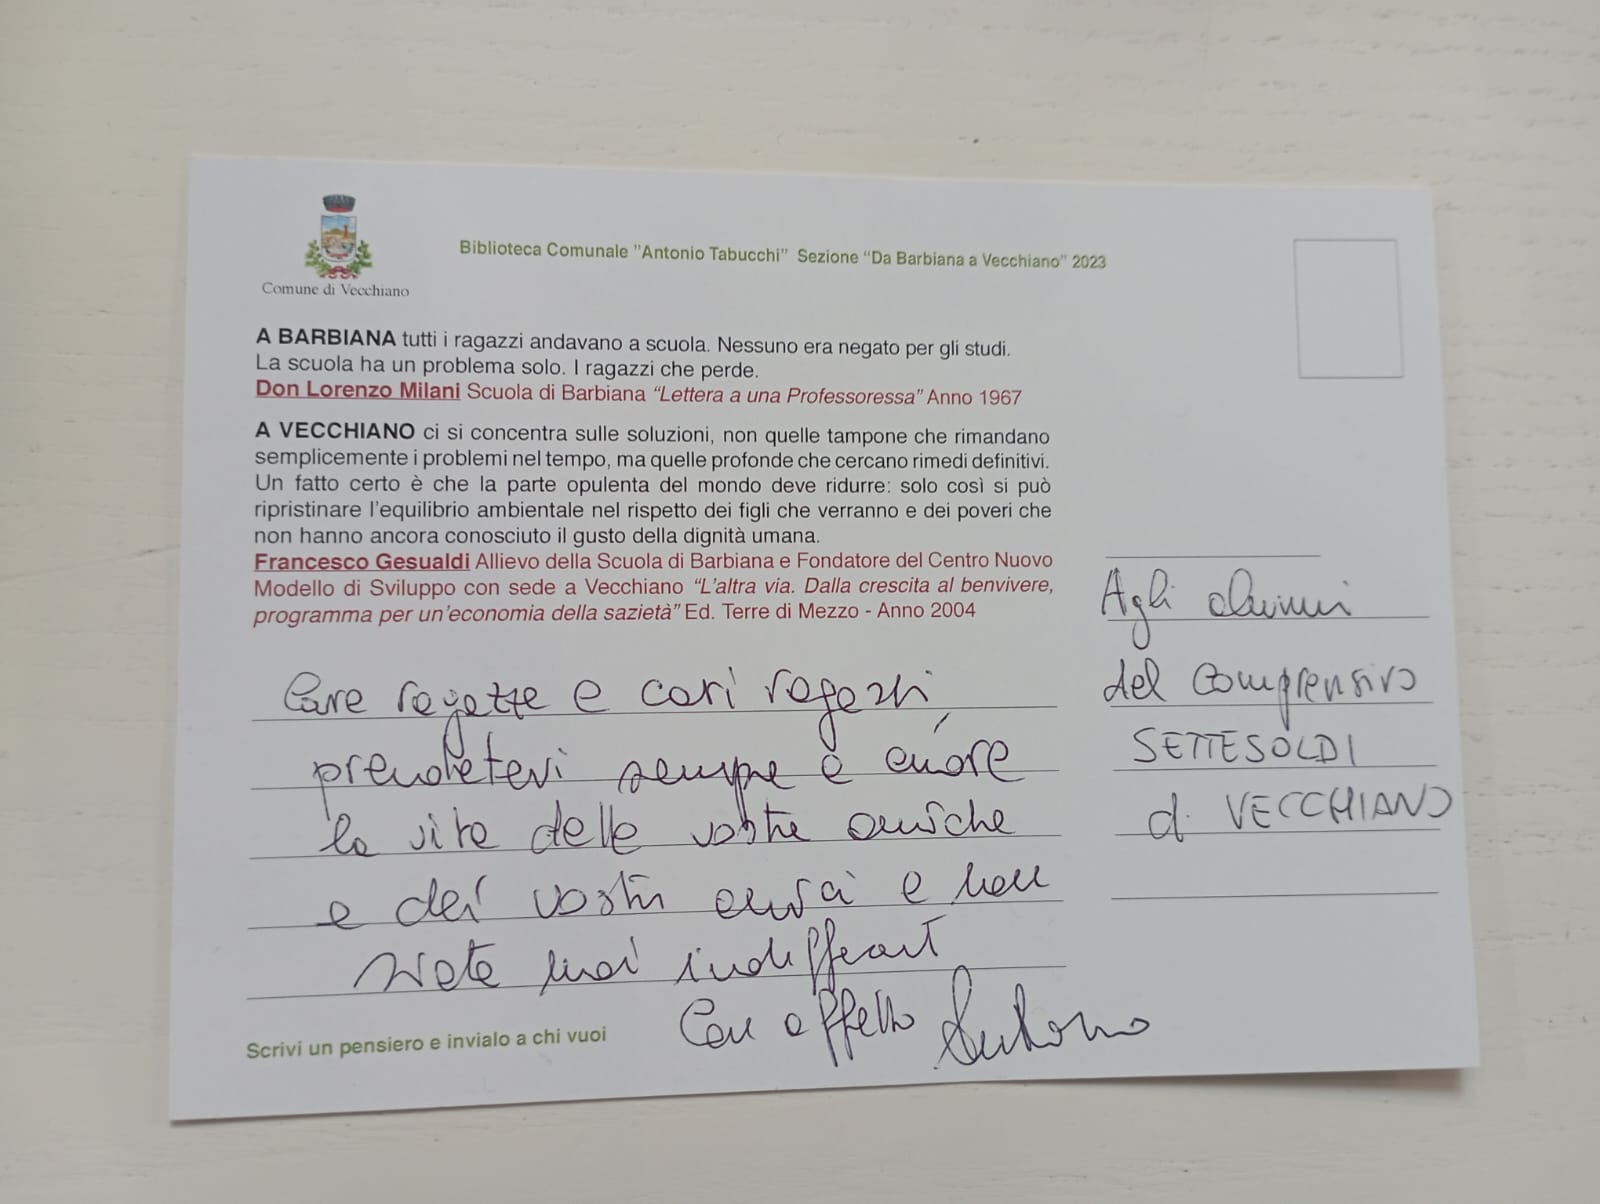 Comune di Vecchiano
Biblioteca Comunale "Antonio Tabucchi" Sezione "Da Barbiana a Vecchiano" 2023
A BARBIANA tutti i ragazzi andavano a scuola. Nessuno era negato per gli studi.
La scuola ha un problema solo. I ragazzi che perde.
Don Lorenzo Milani Scuola di Barbiana "Lettera a una Professoressa" Anno 1967
A VECCHIANO ci si concentra sulle soluzioni, non quelle tampone che rimandano
semplicemente i problemi nel tempo, ma quelle profonde che cercano rimedi definitivi.
Un fatto certo è che la parte opulenta del mondo deve ridurre: solo così si può
ripristinare l'equilibrio ambientale nel rispetto dei figli che verranno e dei poveri che
non hanno ancora conosciuto il gusto della dignità umana.
Francesco Gesualdi Allievo della Scuola di Barbiana e Fondatore del Centro Nuovo
Modello di Sviluppo con sede a Vecchiano "L'altra via. Dalla crescita al benvivere,
programma per un'economia della sazietà" Ed. Terre di Mezzo - Anno 2004
Care ragazze e cari ragazzi,
prendetevi sempre a cuore
la vita delle vostre amiche
e dei vostri amici e non
siate mai indifferenti
Con affetto Antonio
Scrivi un pensiero e invialo a chi vuoi
Agli alunni
del Comprensivo
SETTESOLDI
di VECCHIANO